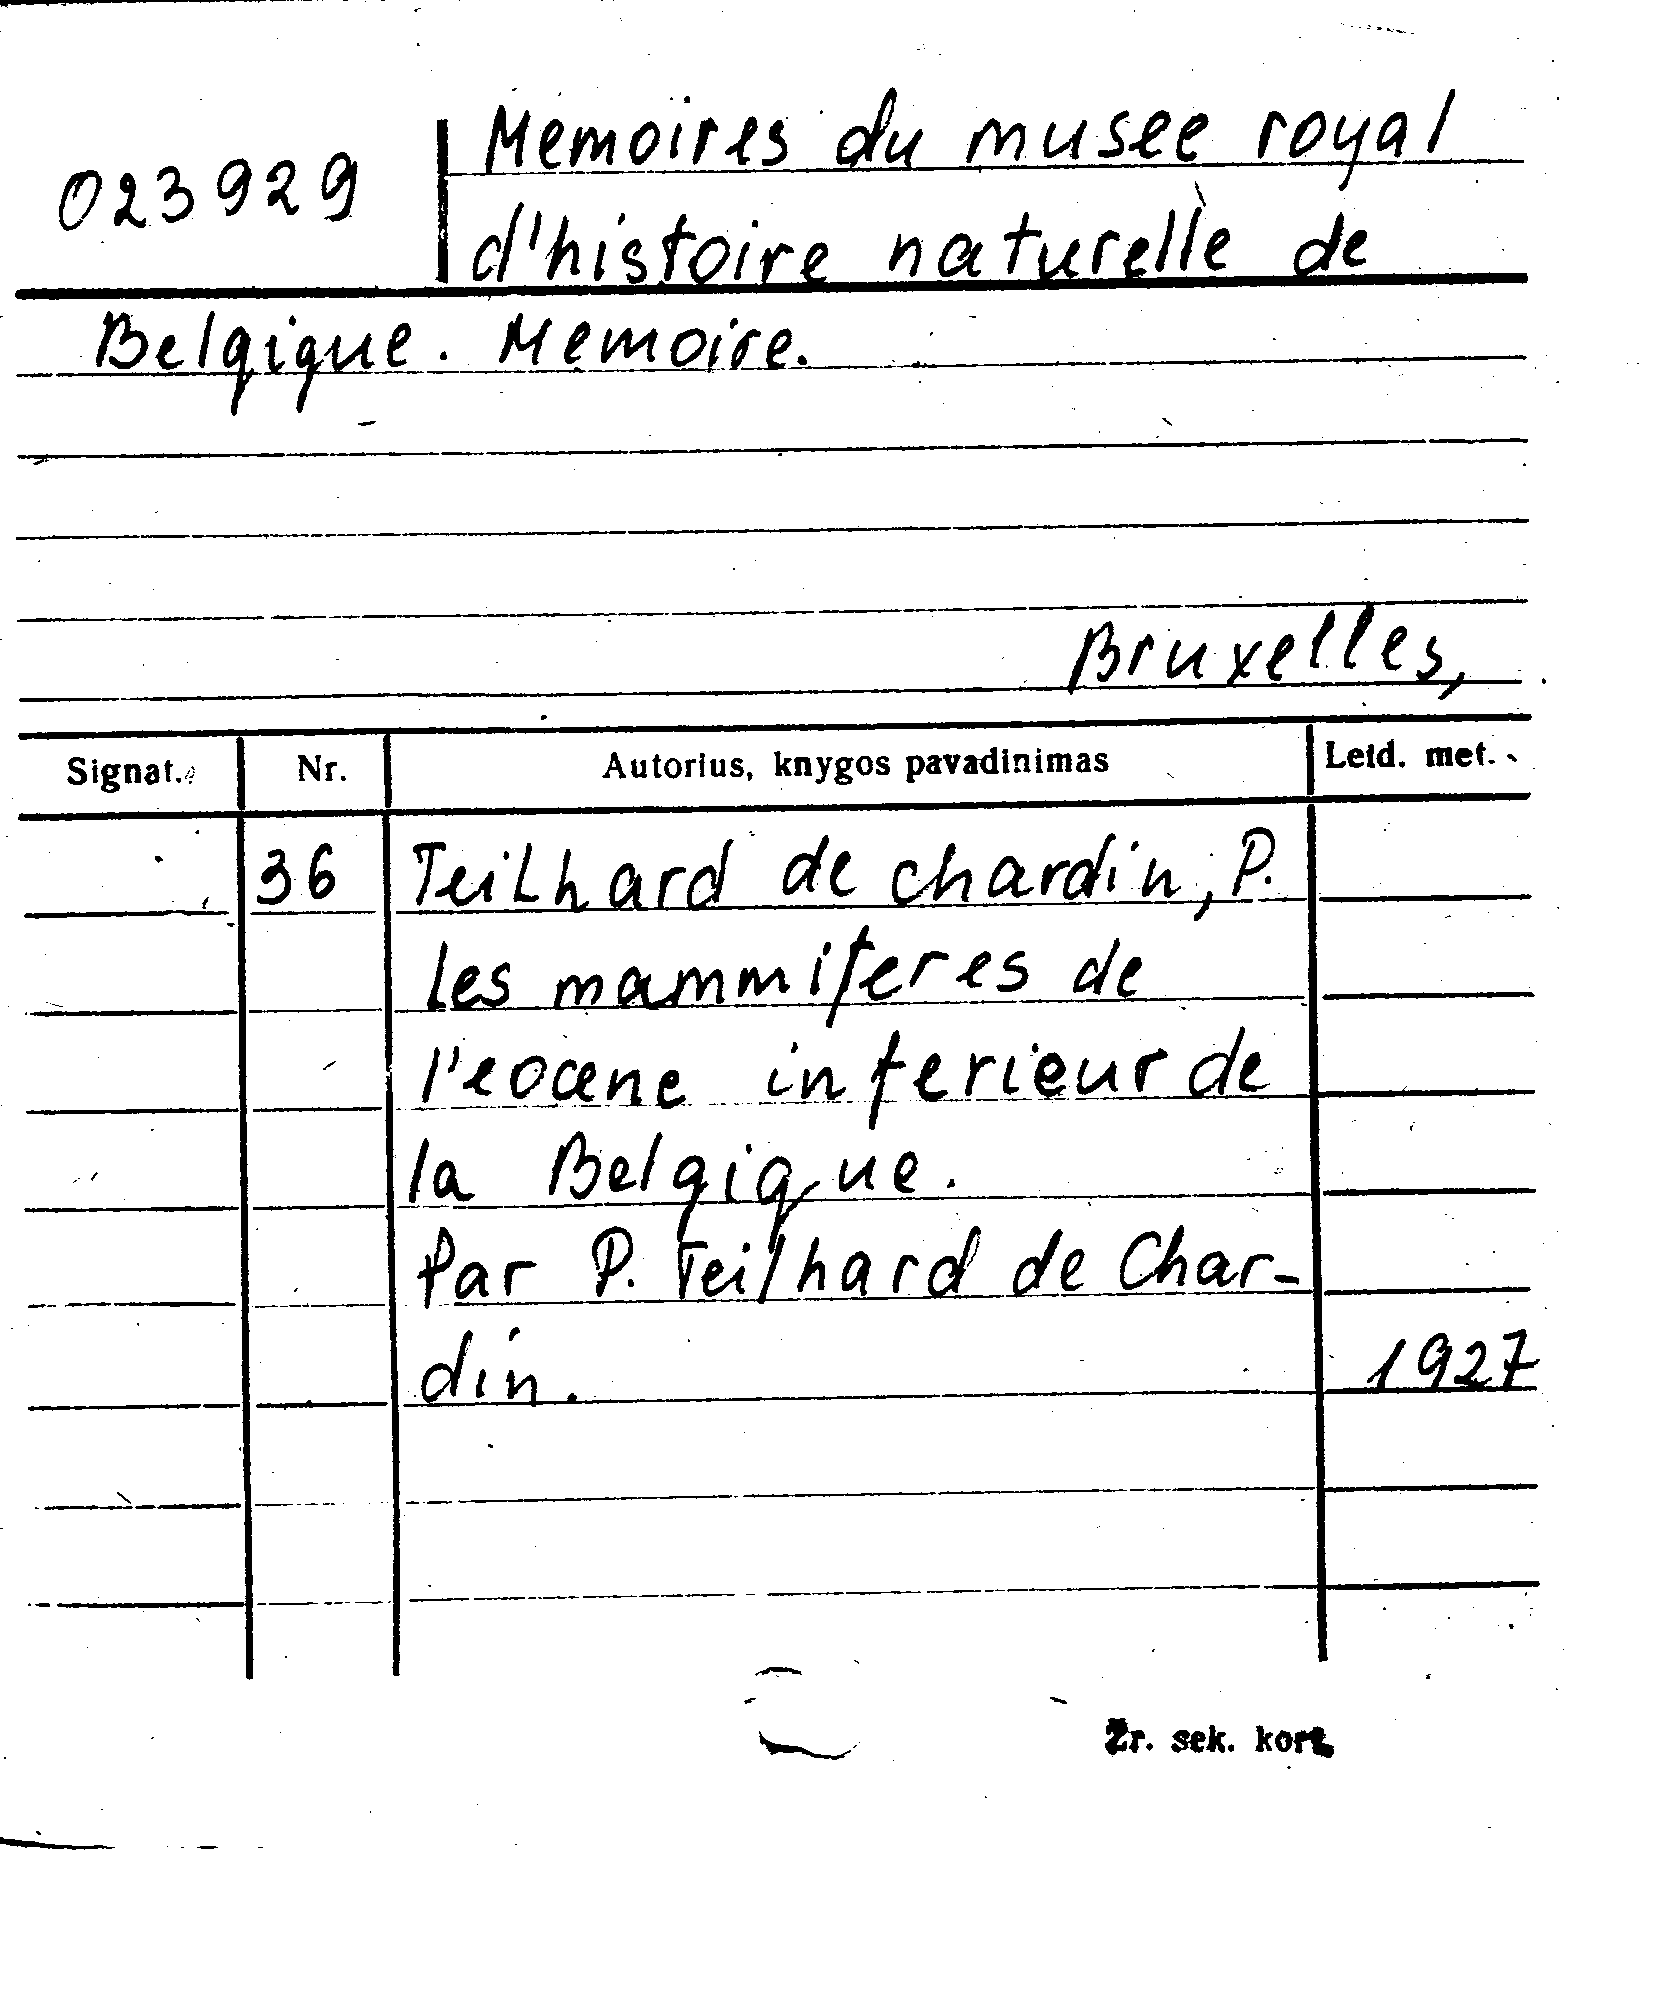 Memoires du musee royal
023929
d'histoire naturelle de
Belgique. Memoire.
Bruxelles,
Signat. Nr. Autorius, knygos pavadinimas Leid. met.
36 Teilhard de chardin, P.
les mammiferes de
l'eocene inferieur de
la Belgique.
Par P. Teilhard de Char-
din. 1927
Žr. sek. kort.